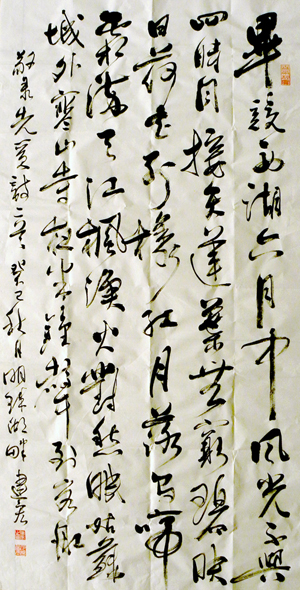 畢竟西湖六月中風光不與
四時同接天蓮葉無窮碧映
日荷花別樣紅月落烏啼
霜滿天江楓漁火對愁眠姑蘇
城外寒山寺夜半鐘聲到客船
敬录先賢詩二首癸巳秋月明珠湖畔